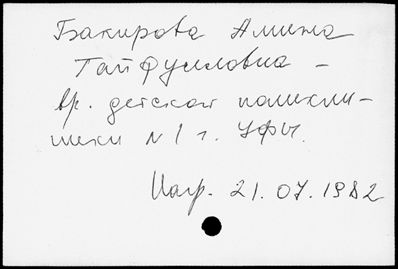 Бакирова Амина
Гайфулловна –
вр. детской поликли-
ники № 1 г. Уфы.
Нагр. 21.07.1982